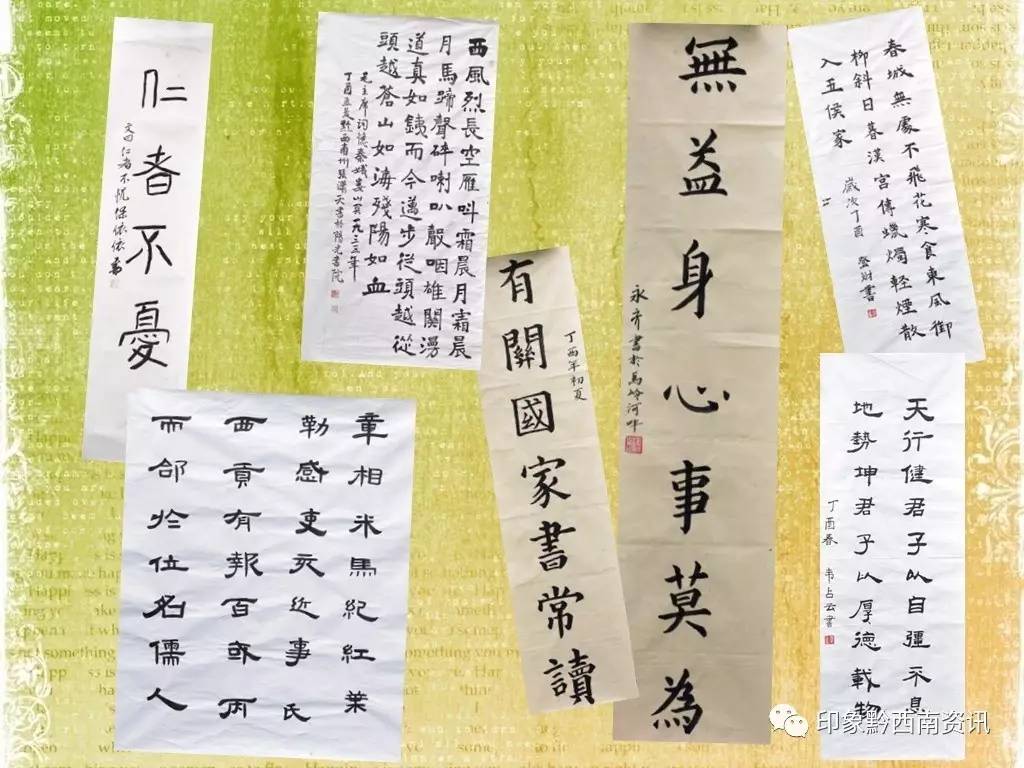 仁者不憂
文曰仁者不忧
西風烈長空雁叫霜晨月霜晨
月馬蹄聲碎喇叭聲咽雄關漫
道真如銕而今邁步從頭越從
頭越蒼山如海殘陽如血
毛主席词憶秦娥婁山關一九三五年
丁酉孟夏黔西南州張潇天書於陽光書院
無益身心事莫為
永齐書於馬岭河畔
春城無處不飛花寒食東風御
柳斜日暮漢宮傳蠟燭輕煙散
入五侯家
歲次丁酉
登財書
丁酉年初夏
有關國家書常讀
章相米馬紀紅葉
勒感吏死近事氏
西貢有報百或丙
而郃於位名儒人
天行健君子以自彊不息
地勢坤君子以厚德載物
丁酉春 韦占云書
印象黔西南资讯